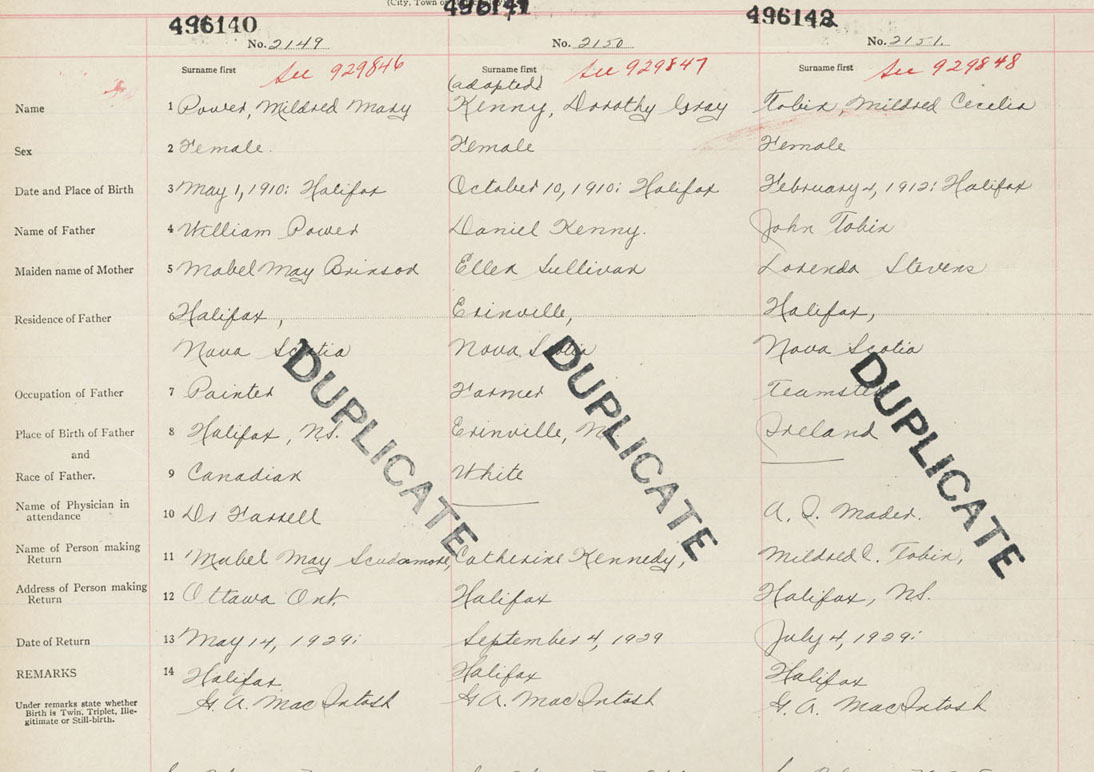 (City, Town or
496140
496141
496142
No. 2149
No. 2150
No. 2151.
Surname first See 929846
Surname first See 929847
Surname first See 929848
(adopted)
Name 1 Power, Mildred Mary
Kenny, Dorothy Gray
Tobin, Mildred Cecelia
Sex 2 Female.
Female
Female
Date and Place of Birth 3 May 1, 1910: Halifax
October 10, 1910: Halifax
February 4, 1912: Halifax
Name of Father 4 William Power
Daniel Kenny.
John Tobin
Maiden name of Mother 5 Mabel May Brinson
Ellen Sullivan
Lorenda Stevens
Residence of Father 6 Halifax,
Erinville,
Halifax,
Nova Scotia
Nova Scotia
Nova Scotia
DUPLICATE
DUPLICATE
DUPLICATE
Occupation of Father 7 Painter
Farmer
Teamster
Place of Birth of Father 8 Halifax, NS.
Erinville, N
Ireland
and
Race of Father. 9 Canadian
White
Name of Physician in
attendance 10 Dr Farrell
A. Q. Mader.
Name of Person making
Return 11 Mabel May Scudamore,
Catherine Kennedy,
Mildred C. Tobin,
Address of Person making
Return 12 Ottawa Ont.
Halifax
Halifax, NS.
Date of Return 13 May 14, 1929:
September 4, 1929
July 4, 1929:
REMARKS 14 Halifax
Halifax
Halifax
G. A. MacIntosh
G. A. MacIntosh
G. A. MacIntosh
Under remarks state whether
Birth is Twin, Triplet, Ille-
gitimate or Still-birth.